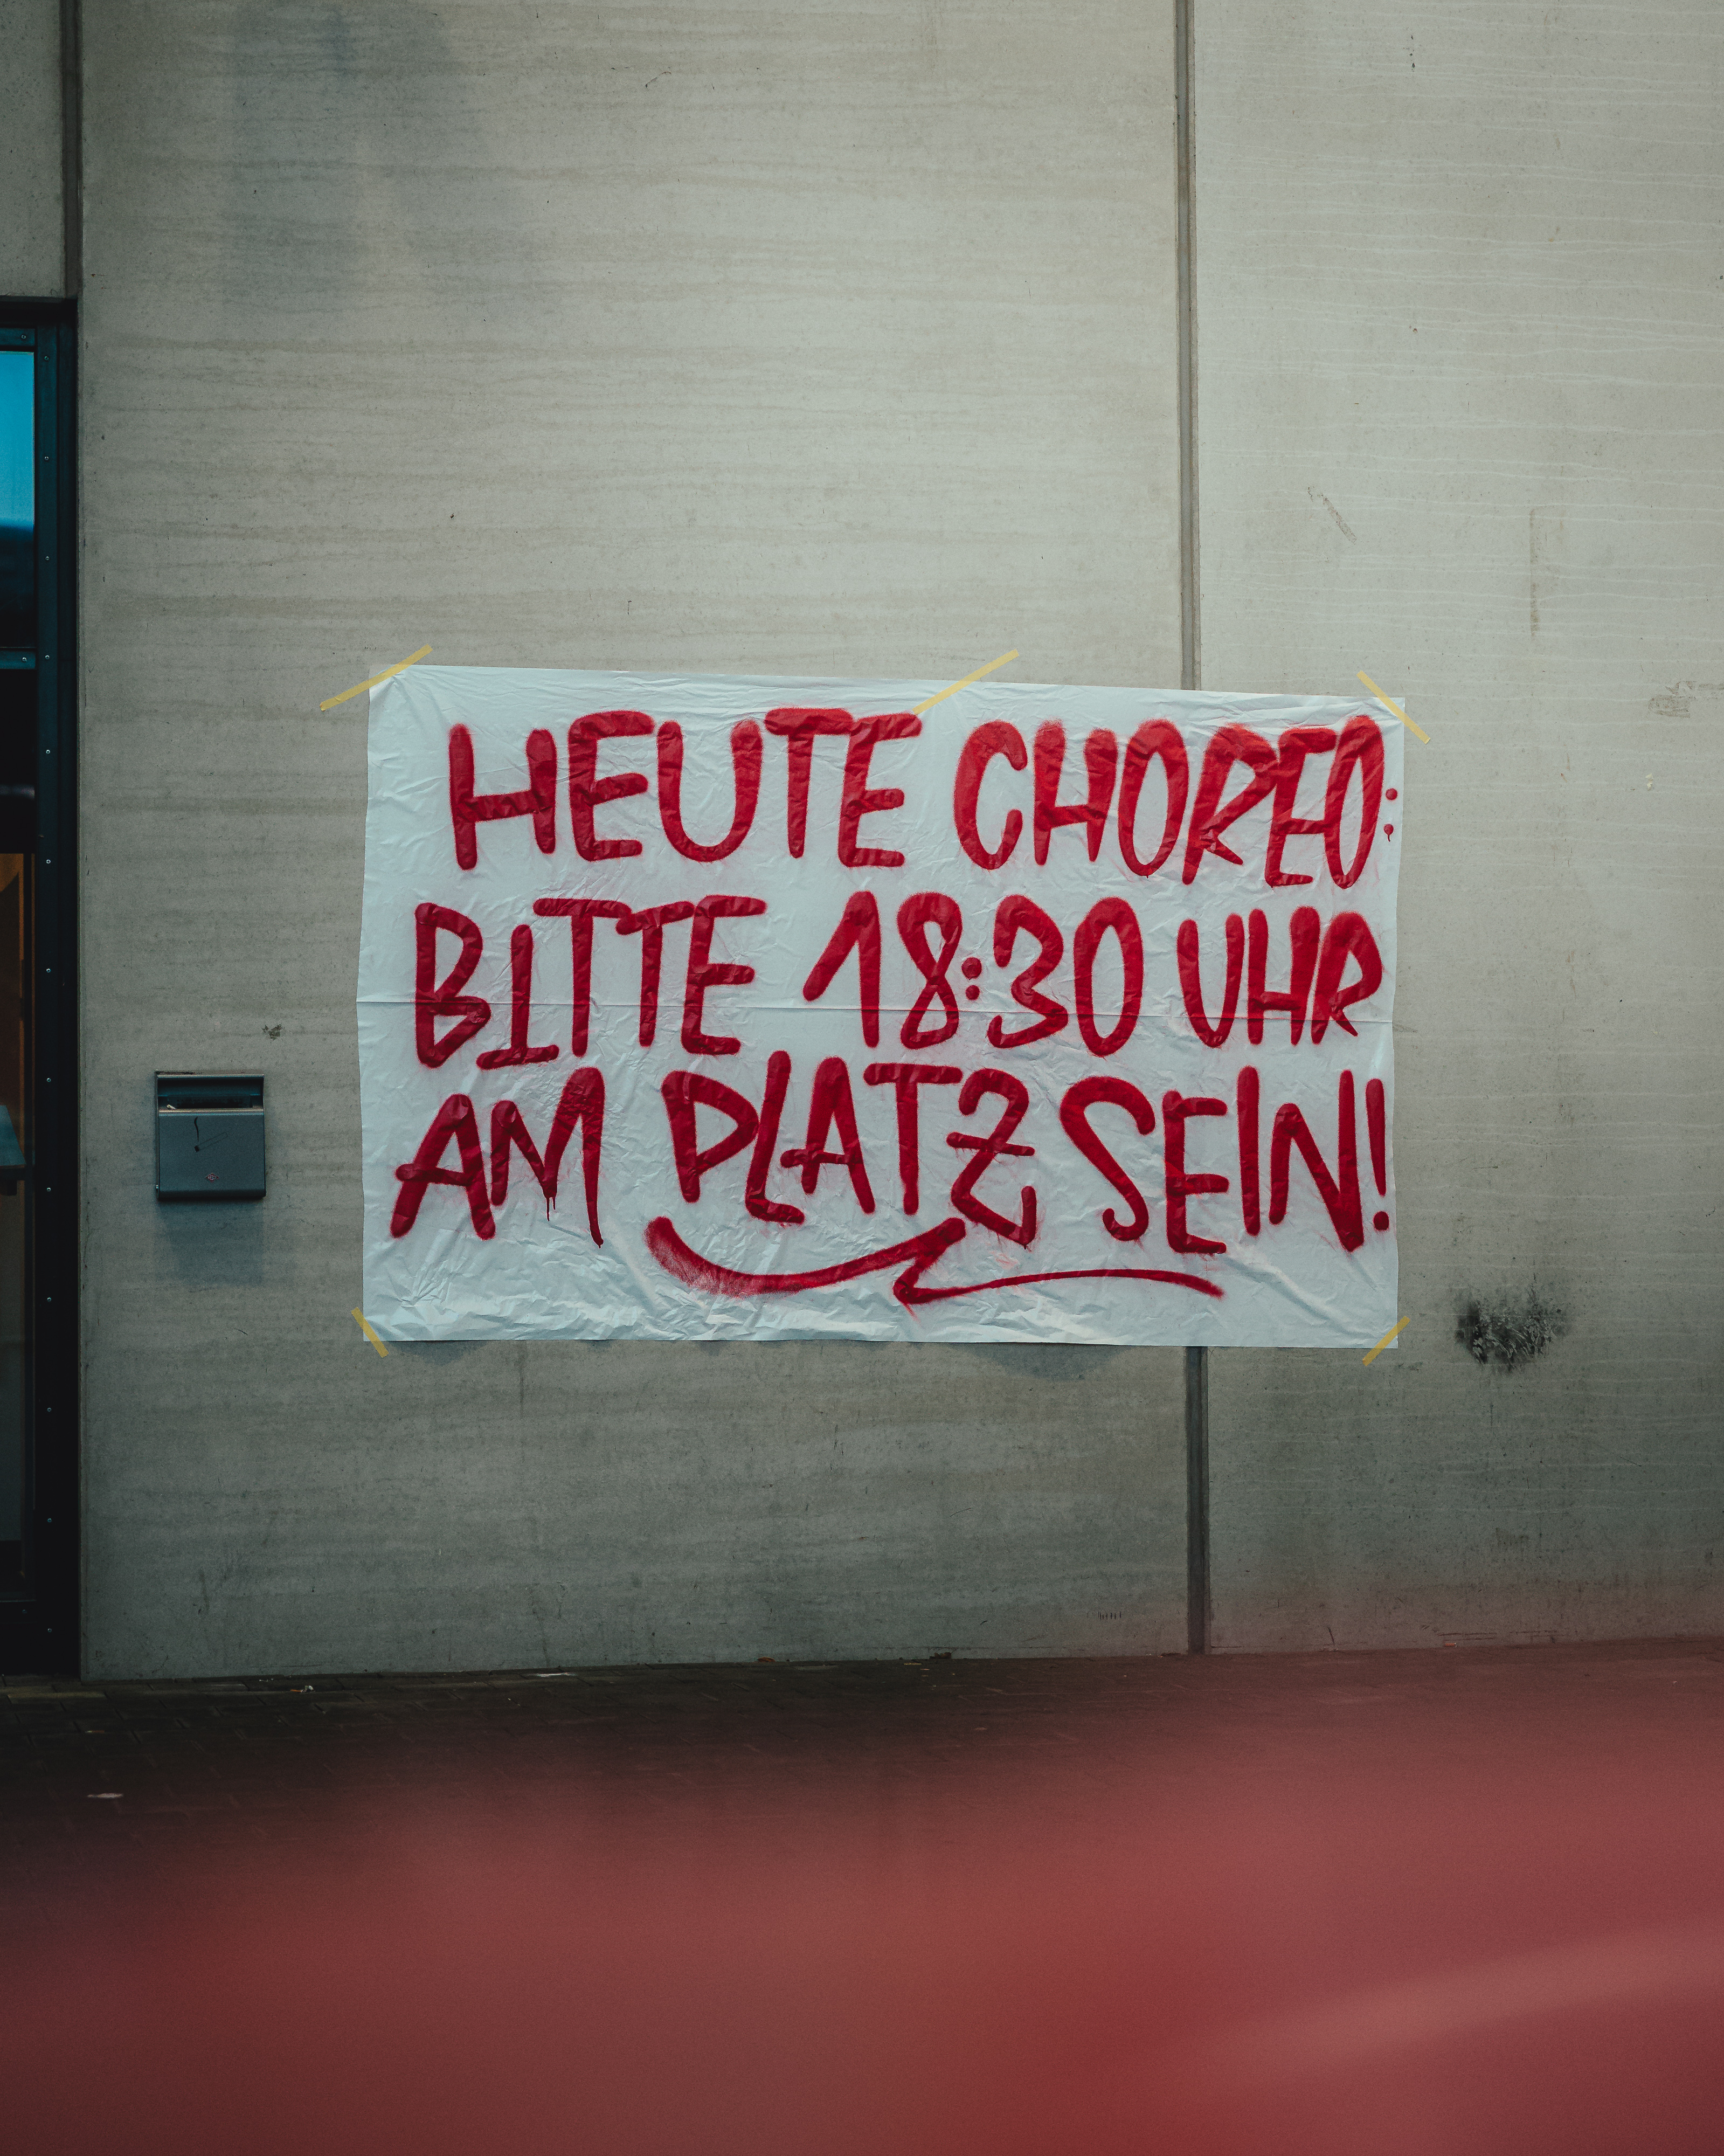 HEUTE CHOREO:
BITTE 18:30 UHR
AM PLATZ SEIN!